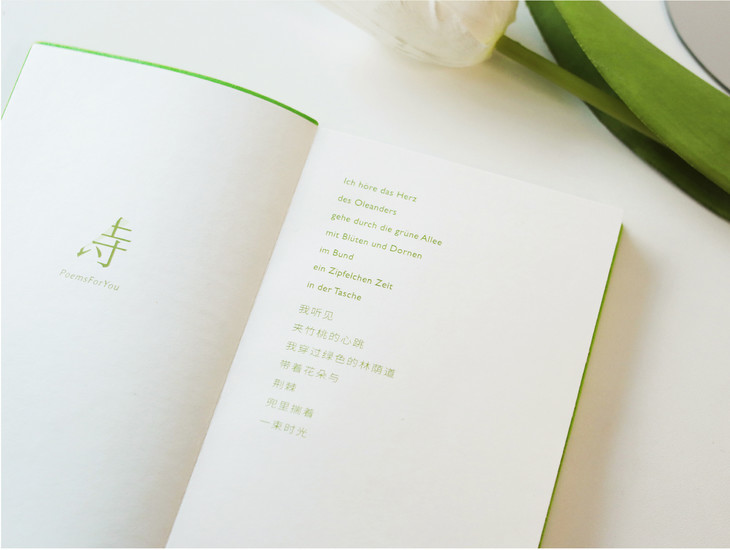 诗
PoemsForYou
Ich höre das Herz
des Oleanders
gehe durch die grüne Allee
mit Blüten und Dornen
im Bund
ein Zipfelchen Zeit
in der Tasche
我听见
夹竹桃的心跳
我穿过绿色的林荫道
带着花朵与
荆棘
兜里揣着
一束时光